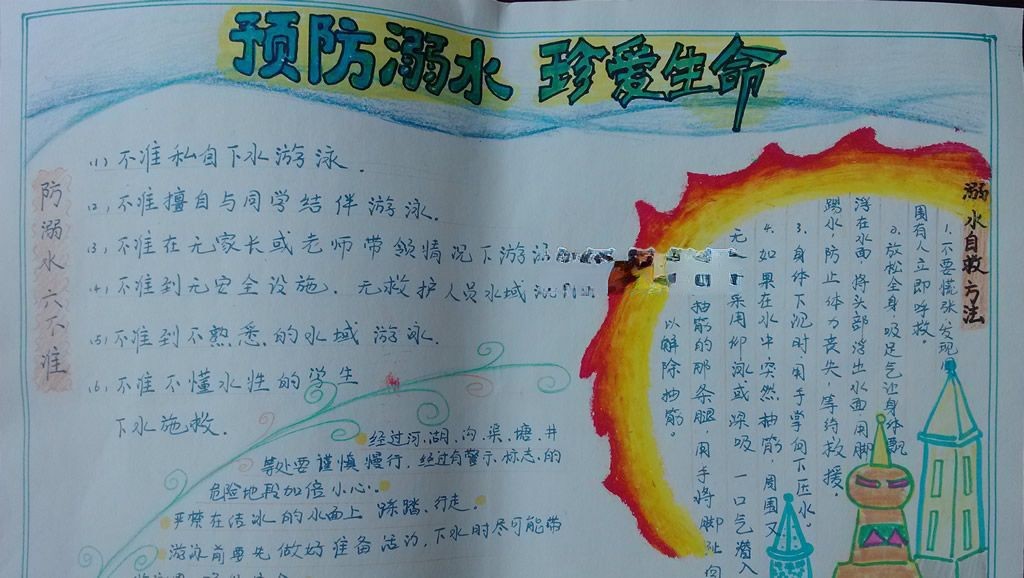 预防溺水 珍爱生命
防溺水六不准
(1)、不准私自下水游泳.
(2)、不准擅自与同学结伴游泳.
(3)、不准在无家长或老师带领情况下游泳
(4)、不准到无安全设施.无救护人员水域
(5)、不准到不熟悉的水域游泳.
(6)、不准不懂水性的学生
下水施救.
经过河、湖、沟、渠、塘、井
等处要谨慎慢行,经过有警示标志的
危险地段加倍小心.
严禁在结冰的水面上踩踏、行走.
游泳前要先做好准备活动,下水时尽可能带
溺水自救方法
1.不要慌张,发现
围有人立即呼救。
2、放松全身,吸足气让身体飘
浮在水面,将头部浮出水面,用脚
踢水,防止体力丧失,等待救援。
3、身体下沉时,用手掌向下压水。
4、如果在水中突然抽筋,周围又
无
采用仰泳或深吸一口气潜入
抽筋的那条腿,用手将脚趾向
以解除抽筋。